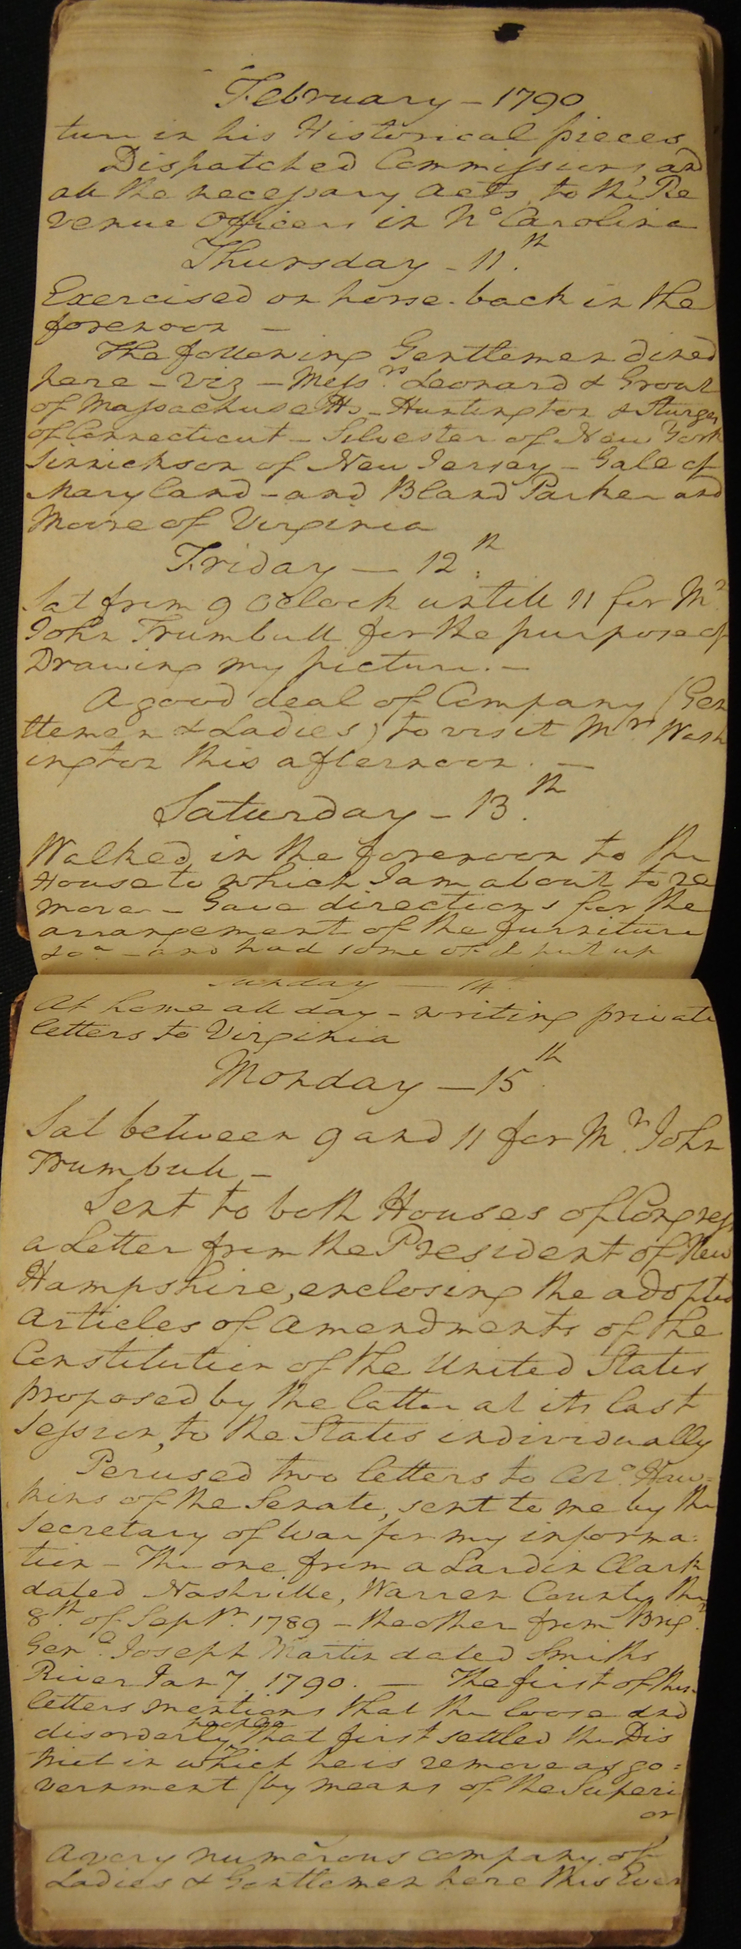 February – 1790
ture in his Historical pieces
Dispatched Commissions, and
all the necessary acts, to the Re
venue Officers in No Carolina
Thursday – 11.th
Exercised on horse-back in the
forenoon –
The following Gentlemen dined
here – viz – Messrs. Leonard & Grout
of Massachusetts – Huntington & Sturges
of Connecticut – Silvester of New York
Sinnickson of New Jersey – Gale of
Maryland – and Bland Parker and
Moore of Virginia
Friday — 12.th
Sat from 9 Oclock untill 11 for Mr
John Trumbull for the purpose of
Drawing my picture. –
A good deal of Company (Gen
tlemen & Ladies) to visit Mrs Wash
ington this afternoon. —
Saturday – 13.th
Walked in the forenoon to the
House to which I am about to re
move – Gave directions for the
arrangement of the furniture
&ca – and had some of it put up
Sunday — 14.
At home all day – writing private
letters to Virginia
Monday – 15.th
Sat between 9 and 11 for Mr. John
Trumbull –
Sent to both Houses of Congress
a Letter from the President of New
Hampshire, enclosing the adopted
Articles of amendments of the
Constitution of the United States
proposed by the latter at its last
Session, to the States individually
Perused two letters to Colo. Haw=
kins of the Senate, sent to me by the
Secretary of War for my informa=
tion – The one from a Lardin Clark
dated Nashville, Warren County the
8th. of Septr. 1789 – the other from Brigr.
Genl. Joseph Martin dated Smiths
River Jany 1790. — The first of these
letters mentions that the loose and
disorderly people that first settled the Dis
trict in which he is remove as go=
vernment (by means of the Superi
or
A very numerous company of
Ladies & Gentlemen here this Even